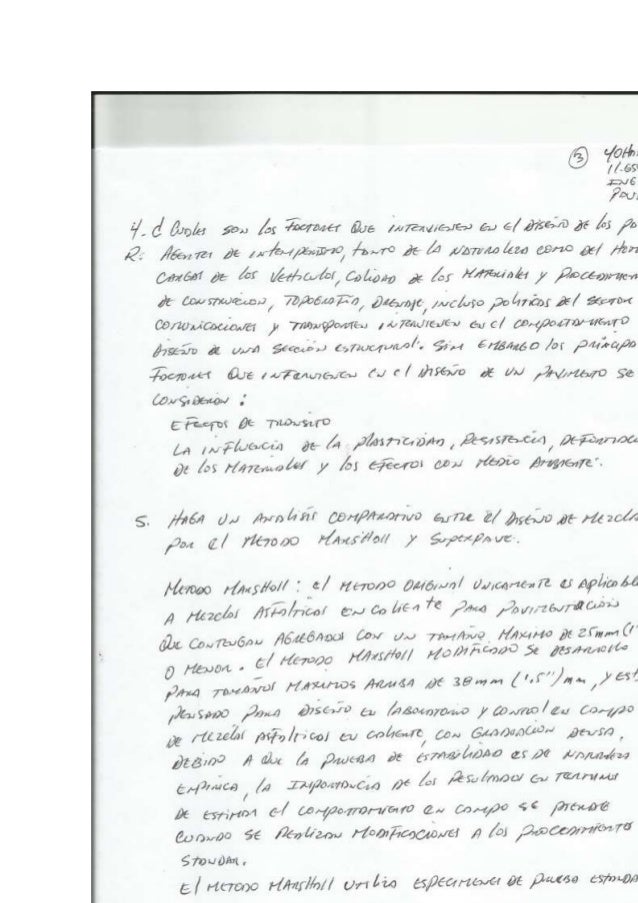 ③ YOHA
11.65
ING
PAVI
4.- ¿ Cuales son los factores que intervienen en el diseño de los pa
R: Agentes de intemperismo, tanto de la naturaleza como del Hom
cargas de los vehiculos, calidad de los materiales y procedimien
de construccion, topografia, drenaje, incluso politicas del sector
comunicaciones y transportes intervienen en el comportamiento
diseño de una sección estructural. Sim embargo los principa
factores que intervienen en el diseño de un pavimento se
consideran :
Efectos de transito
La influencia de la plasticidad, Resistencia, Deformac
de los materiales y los efectos con medio ambiente.
5. Haga un analisis comparativo entre el diseño de mezcla
por el metodo Marshall y Superpave.
Metodo Marshall : el metodo original unicamente es aplicable
a mezclas asfalticas en caliente para pavimentación
que contengan agregados con un tamaño maximo de 25mm (1"
o menor. El metodo Marshall modificado se desarrollo
para tamaños maximos arriba de 38mm (1.5") mm, y est
pensado para diseño en laboratorio y control en campo
de mezclas asfalticas en caliente, con graduación densa,
debido a que la prueba de estabilidad es de naturaleza
empirica, la importancia de los resultados en terminos
de estimar el comportamiento en campo se pierde
cuando se realizan modificaciones a los procedimientos
standar.
El metodo Marshall utiliza especimenes de prueba estanda